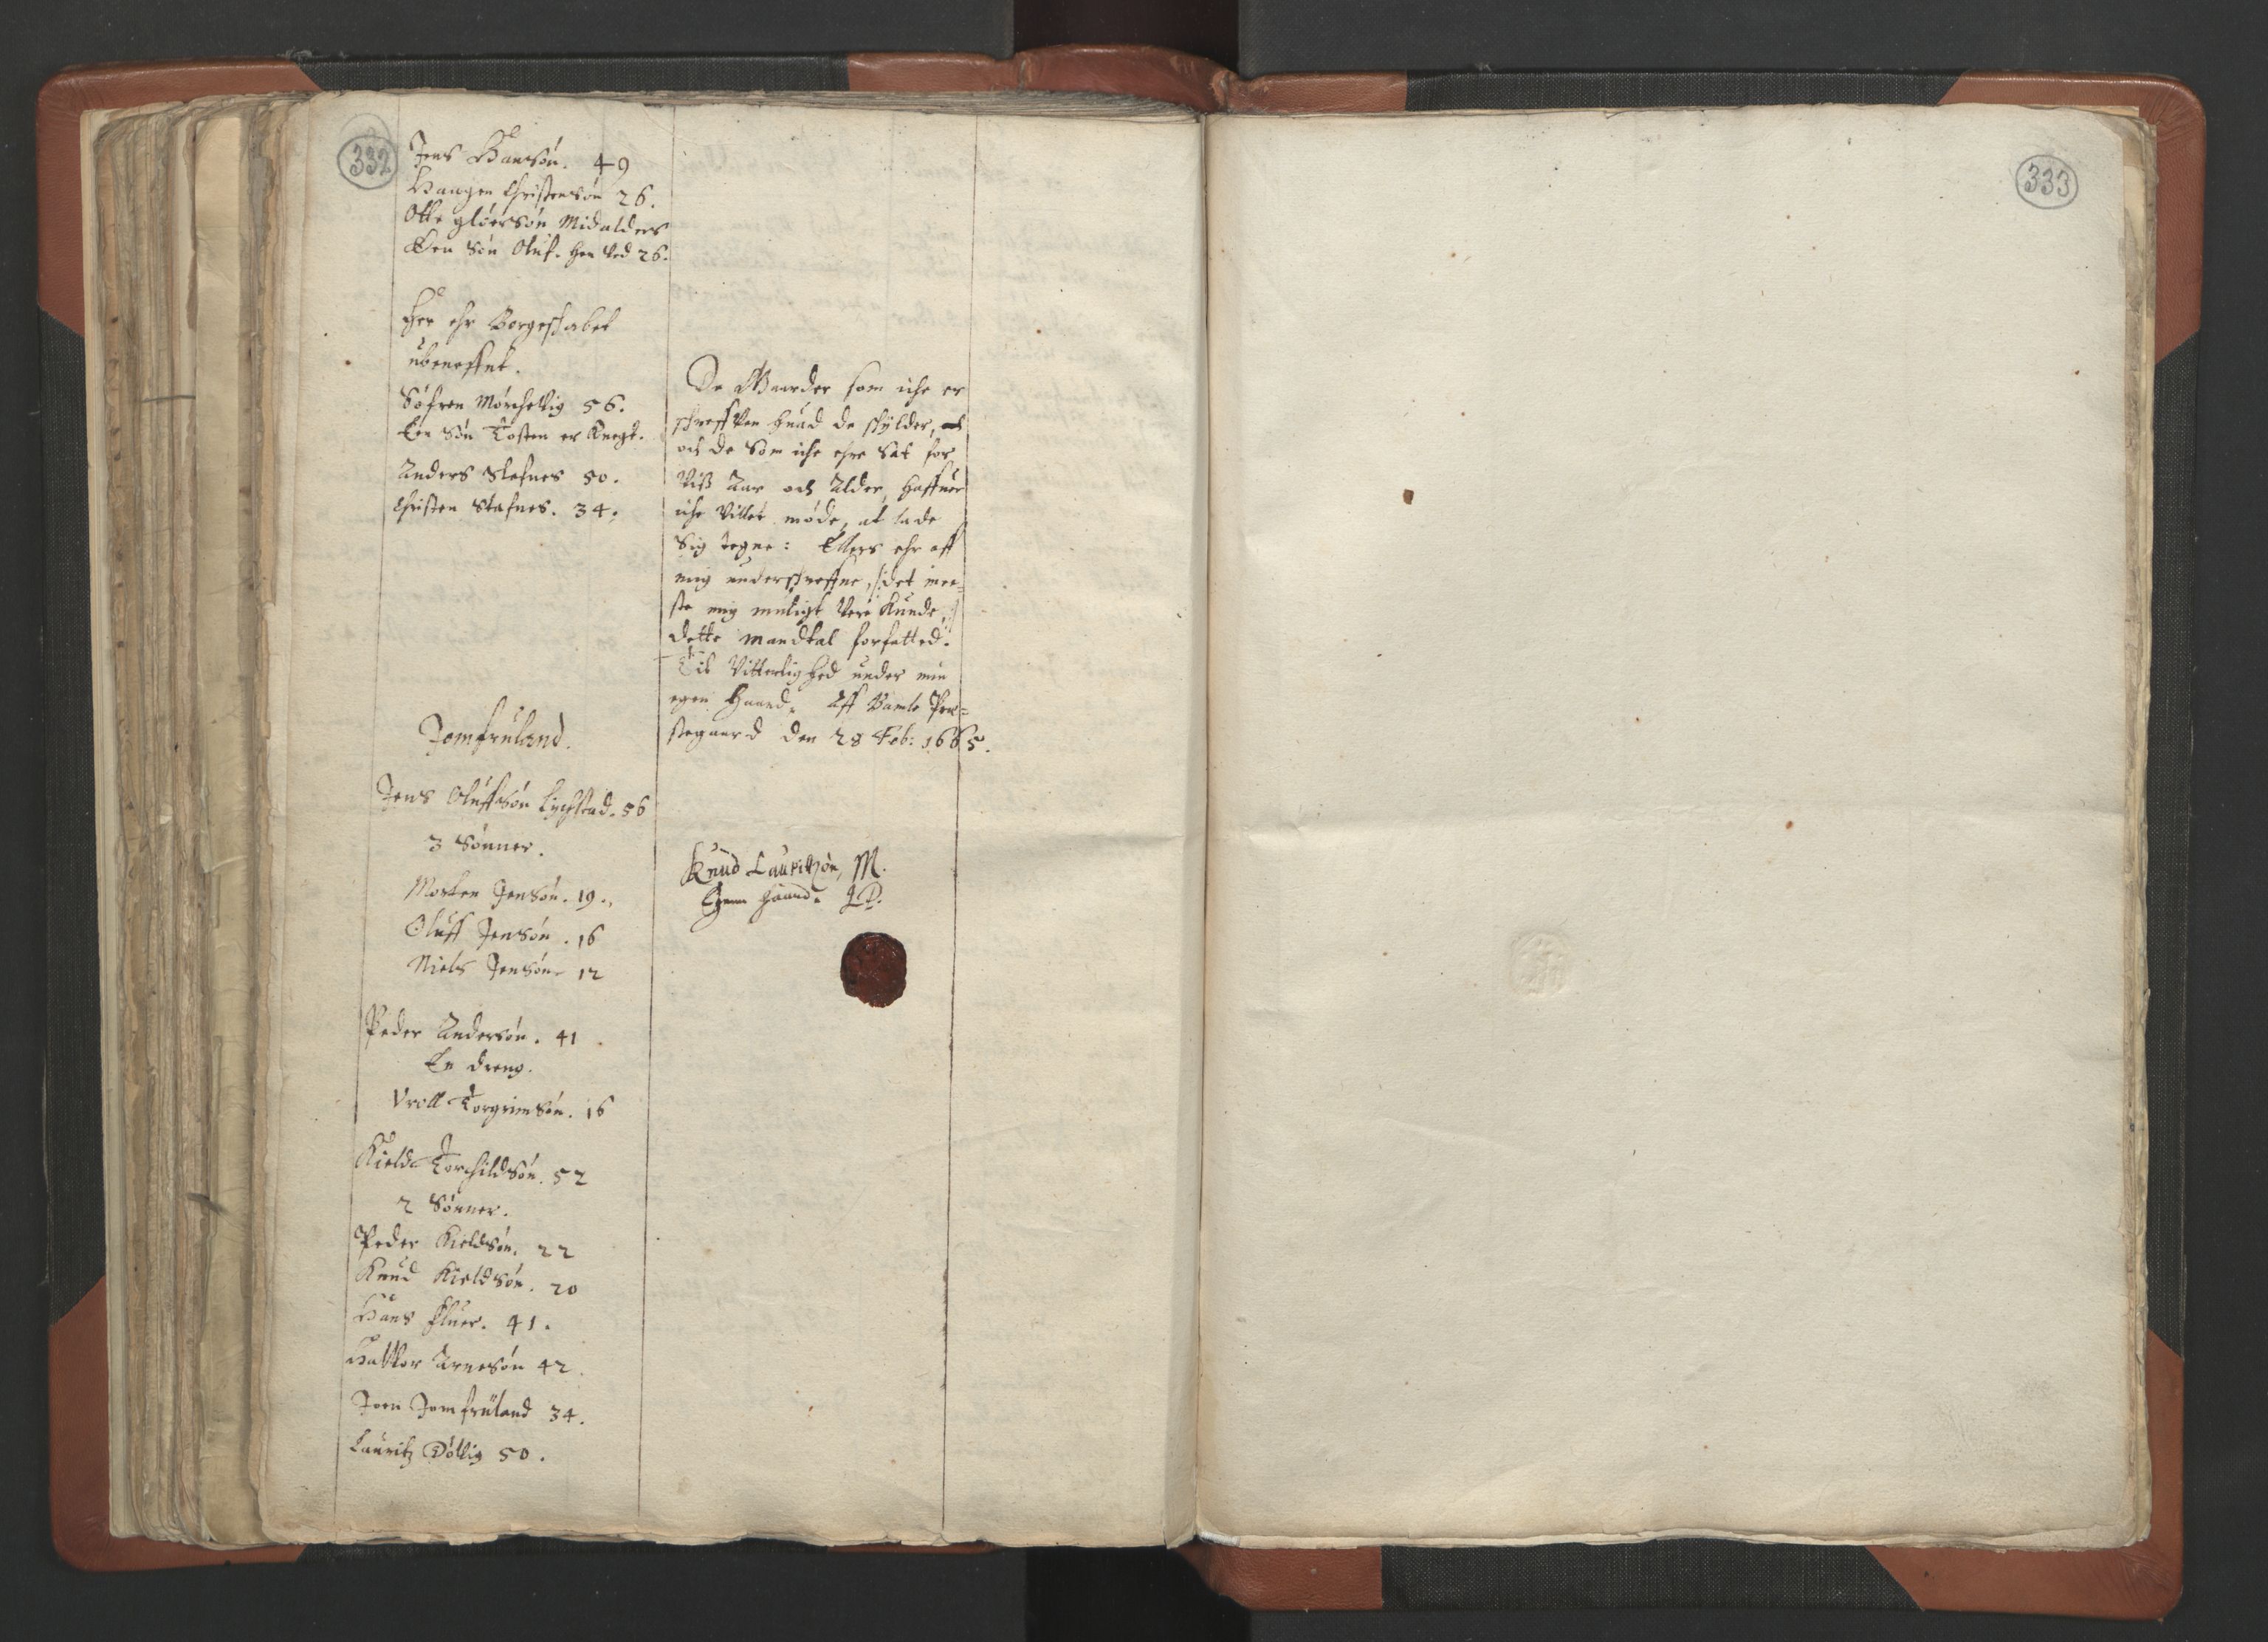 332
Jens Hansøn. 49
Haagen Christensøn 26.
Otte gløersøn Midalders
Een Søn Oluf. hen ved 26.
Her ehr Borgeskabet
ubeneffnt.
Søfren Mørchevig 56.
Een Søn Tosten er Knegt.
Anders Stafnes 50.
Christen Stafnes. 34.
Jomfruland.
Jens Oluffsøn 56
3 Sønner.
Morten Jensøn. 19.
Oluff Jensøn. 16
Niels Jensøn 12
Peder Andersøn. 41
En dreng.
Vroll Torgrimsøn. 16
Kield Torchildsøn. 52
2 Sønner.
Peder Kieldsøn. 22
Knud Kieldsøn. 20
Hans 41.
Halvor Arnesøn 42.
Joen Jomfruland 34.
Lauritz 50.
De Gaarder som iche er
schreffven huad de schylder,
och de som iche ehre Sat for
Viss Aar och Alder, haffuer
iche villet møde, at lade
Sig tegne: Ellers ehr aff
mig underschreffne, /:det mee=
ste mig muligt vere kunde,:/
dette Mandtal forfatted.
Til Vitterlighed under min
egen Haand. Aff Bamle Pre=
stegaard den 28 Feb: 1665.
Knud Lauritzøn, M.
Egenn haand.
333